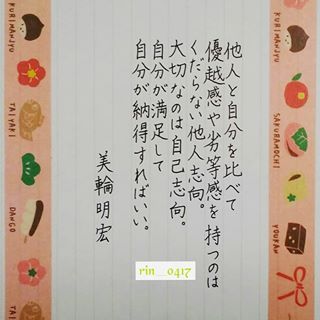 他人と自分を比べて
優越感や劣等感を持つのは
くだらない他人志向。
大切なのは、自己志向。
自分が満足して
自分が納得すればいい。
美輪明宏
rin__0417
KURIMANJYU
TAIYAKI
DANGO
KURIMANJYU
SAKURAMOCHI
YOUKAN